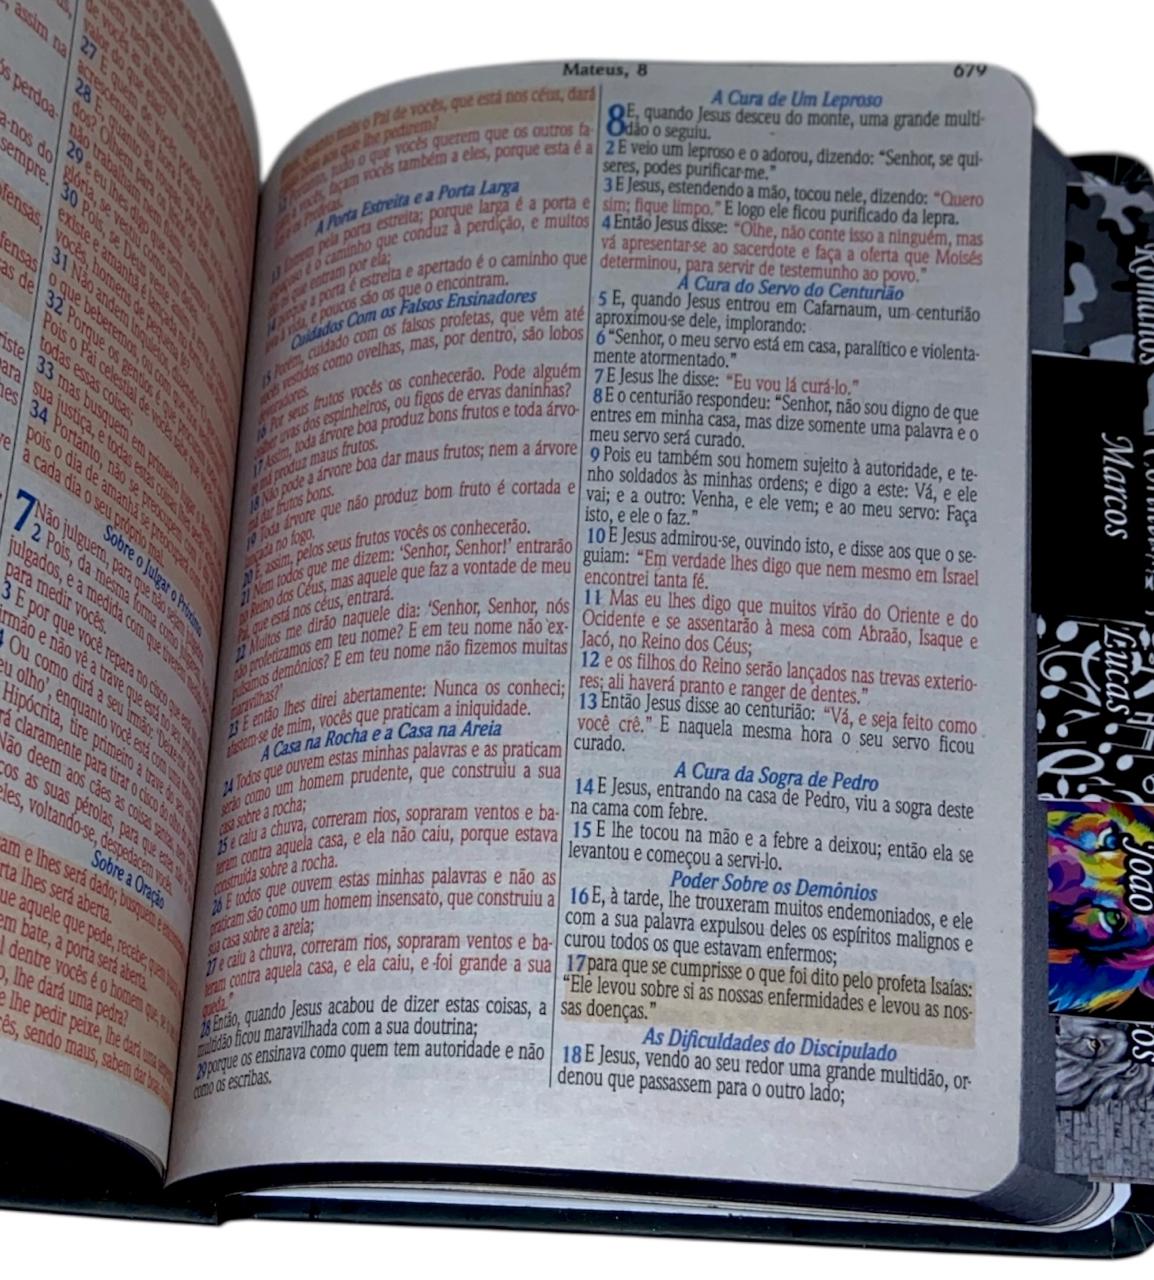 Mateus, 8
679
27 E quem de
28 E, quanto às
29 e eu lhes digo que
30 Pois, se Deus
31 Não andem
32 Porque os gentios é que
Pois o Pai celestial de vocês
todas essas coisas;
33 mas busquem em primeiro lugar
sua justiça, e todas estas coisas
34 Portanto, não se preocupem
pois o dia de amanhã se preocupará
a cada dia o seu próprio mal.
Sobre o Julgar o Próximo
7 Não julguem, para que não sejam
2 Pois, da mesma forma como
julgados, e a medida com que
para medir vocês.
3 E por que você repara no cisco que
irmão e não vê a trave que está no seu
Ou como dirá a seu irmão: 'Deixe
olho', enquanto você está com uma
Hipócrita, tire primeiro a trave do
claramente para tirar o cisco do olho
Não deem aos cães as coisas
as suas pérolas, para que
eles, voltando-se, despedacem vocês.
Sobre a Oração
e lhes será dado; busquem e
lhes será aberta.
aquele que pede, recebe; quem
bate, a porta será aberta.
dentre vocês é o homem que, se
lhe dará uma pedra?
lhe pedir peixe, lhe dará uma
sendo maus, sabem dar
quanto mais o Pai de vocês, que está nos céus, dará
aos que lhe pedirem?
tudo o que vocês querem que os outros fa-
vocês, façam vocês também a eles, porque esta é a
A Porta Estreita e a Porta Larga
13 Entrem pela porta estreita; porque larga é a porta e
espaçoso é o caminho que conduz à perdição, e muitos
que entram por ela;
14 porque a porta é estreita e apertado é o caminho que
leva à vida, e poucos são os que o encontram.
Cuidados Com os Falsos Ensinadores
15 Porém, cuidado com os falsos profetas, que vêm até
vocês vestidos como ovelhas, mas, por dentro, são lobos
devoradores.
16 Por seus frutos vocês os conhecerão. Pode alguém
colher uvas dos espinheiros, ou figos de ervas daninhas?
17 Assim, toda árvore boa produz bons frutos e toda árvo-
re má produz maus frutos.
18 Não pode a árvore boa dar maus frutos; nem a árvore
má dar frutos bons.
19 Toda árvore que não produz bom fruto é cortada e
lançada no fogo.
20 E, assim, pelos seus frutos vocês os conhecerão.
21 Nem todos que me dizem: 'Senhor, Senhor!' entrarão
no Reino dos Céus, mas aquele que faz a vontade de meu
Pai, que está nos céus, entrará.
22 Muitos me dirão naquele dia: 'Senhor, Senhor, nós
não profetizamos em teu nome? E em teu nome não ex-
pulsamos demônios? E em teu nome não fizemos muitas
maravilhas?'
23 E então lhes direi abertamente: Nunca os conheci;
afastem-se de mim, vocês que praticam a iniquidade.
A Casa na Rocha e a Casa na Areia
24 Todos que ouvem estas minhas palavras e as praticam
serão como um homem prudente, que construiu a sua
casa sobre a rocha;
25 e caiu a chuva, correram rios, sopraram ventos e ba-
teram contra aquela casa, e ela não caiu, porque estava
construída sobre a rocha.
26 E todos que ouvem estas minhas palavras e não as
praticam são como um homem insensato, que construiu a
sua casa sobre a areia;
27 e caiu a chuva, correram rios, sopraram ventos e ba-
teram contra aquela casa, e ela caiu, e foi grande a sua
queda."
28 Então, quando Jesus acabou de dizer estas coisas, a
multidão ficou maravilhada com a sua doutrina;
29 porque os ensinava como quem tem autoridade e não
como os escribas.
A Cura de Um Leproso
8 E, quando Jesus desceu do monte, uma grande multi-
dão o seguiu.
2 E veio um leproso e o adorou, dizendo: "Senhor, se qui-
seres, podes purificar-me."
3 E Jesus, estendendo a mão, tocou nele, dizendo: "Quero
sim; fique limpo." E logo ele ficou purificado da lepra.
4 Então Jesus disse: "Olhe, não conte isso a ninguém, mas
vá apresentar-se ao sacerdote e faça a oferta que Moisés
determinou, para servir de testemunho ao povo."
A Cura do Servo do Centurião
5 E, quando Jesus entrou em Cafarnaum, um centurião
aproximou-se dele, implorando:
6 "Senhor, o meu servo está em casa, paralítico e violenta-
mente atormentado."
7 E Jesus lhe disse: "Eu vou lá curá-lo."
8 E o centurião respondeu: "Senhor, não sou digno de que
entres em minha casa, mas dize somente uma palavra e o
meu servo será curado.
9 Pois eu também sou homem sujeito à autoridade, e te-
nho soldados às minhas ordens; e digo a este: Vá, e ele
vai; e a outro: Venha, e ele vem; e ao meu servo: Faça
isto, e ele o faz."
10 E Jesus admirou-se, ouvindo isto, e disse aos que o se-
guiam: "Em verdade lhes digo que nem mesmo em Israel
encontrei tanta fé.
11 Mas eu lhes digo que muitos virão do Oriente e do
Ocidente e se assentarão à mesa com Abraão, Isaque e
Jacó, no Reino dos Céus;
12 e os filhos do Reino serão lançados nas trevas exterio-
res; ali haverá pranto e ranger de dentes."
13 Então Jesus disse ao centurião: "Vá, e seja feito como
você crê." E naquela mesma hora o seu servo ficou
curado.
A Cura da Sogra de Pedro
14 E Jesus, entrando na casa de Pedro, viu a sogra deste
na cama com febre.
15 E lhe tocou na mão e a febre a deixou; então ela se
levantou e começou a servi-lo.
Poder Sobre os Demônios
16 E, à tarde, lhe trouxeram muitos endemoniados, e ele
com a sua palavra expulsou deles os espíritos malignos e
curou todos os que estavam enfermos;
17 para que se cumprisse o que foi dito pelo profeta Isaías:
"Ele levou sobre si as nossas enfermidades e levou as nos-
sas doenças."
As Dificuldades do Discipulado
18 E Jesus, vendo ao seu redor uma grande multidão, or-
denou que passassem para o outro lado;
Romanos
Marcos
Lucas
João